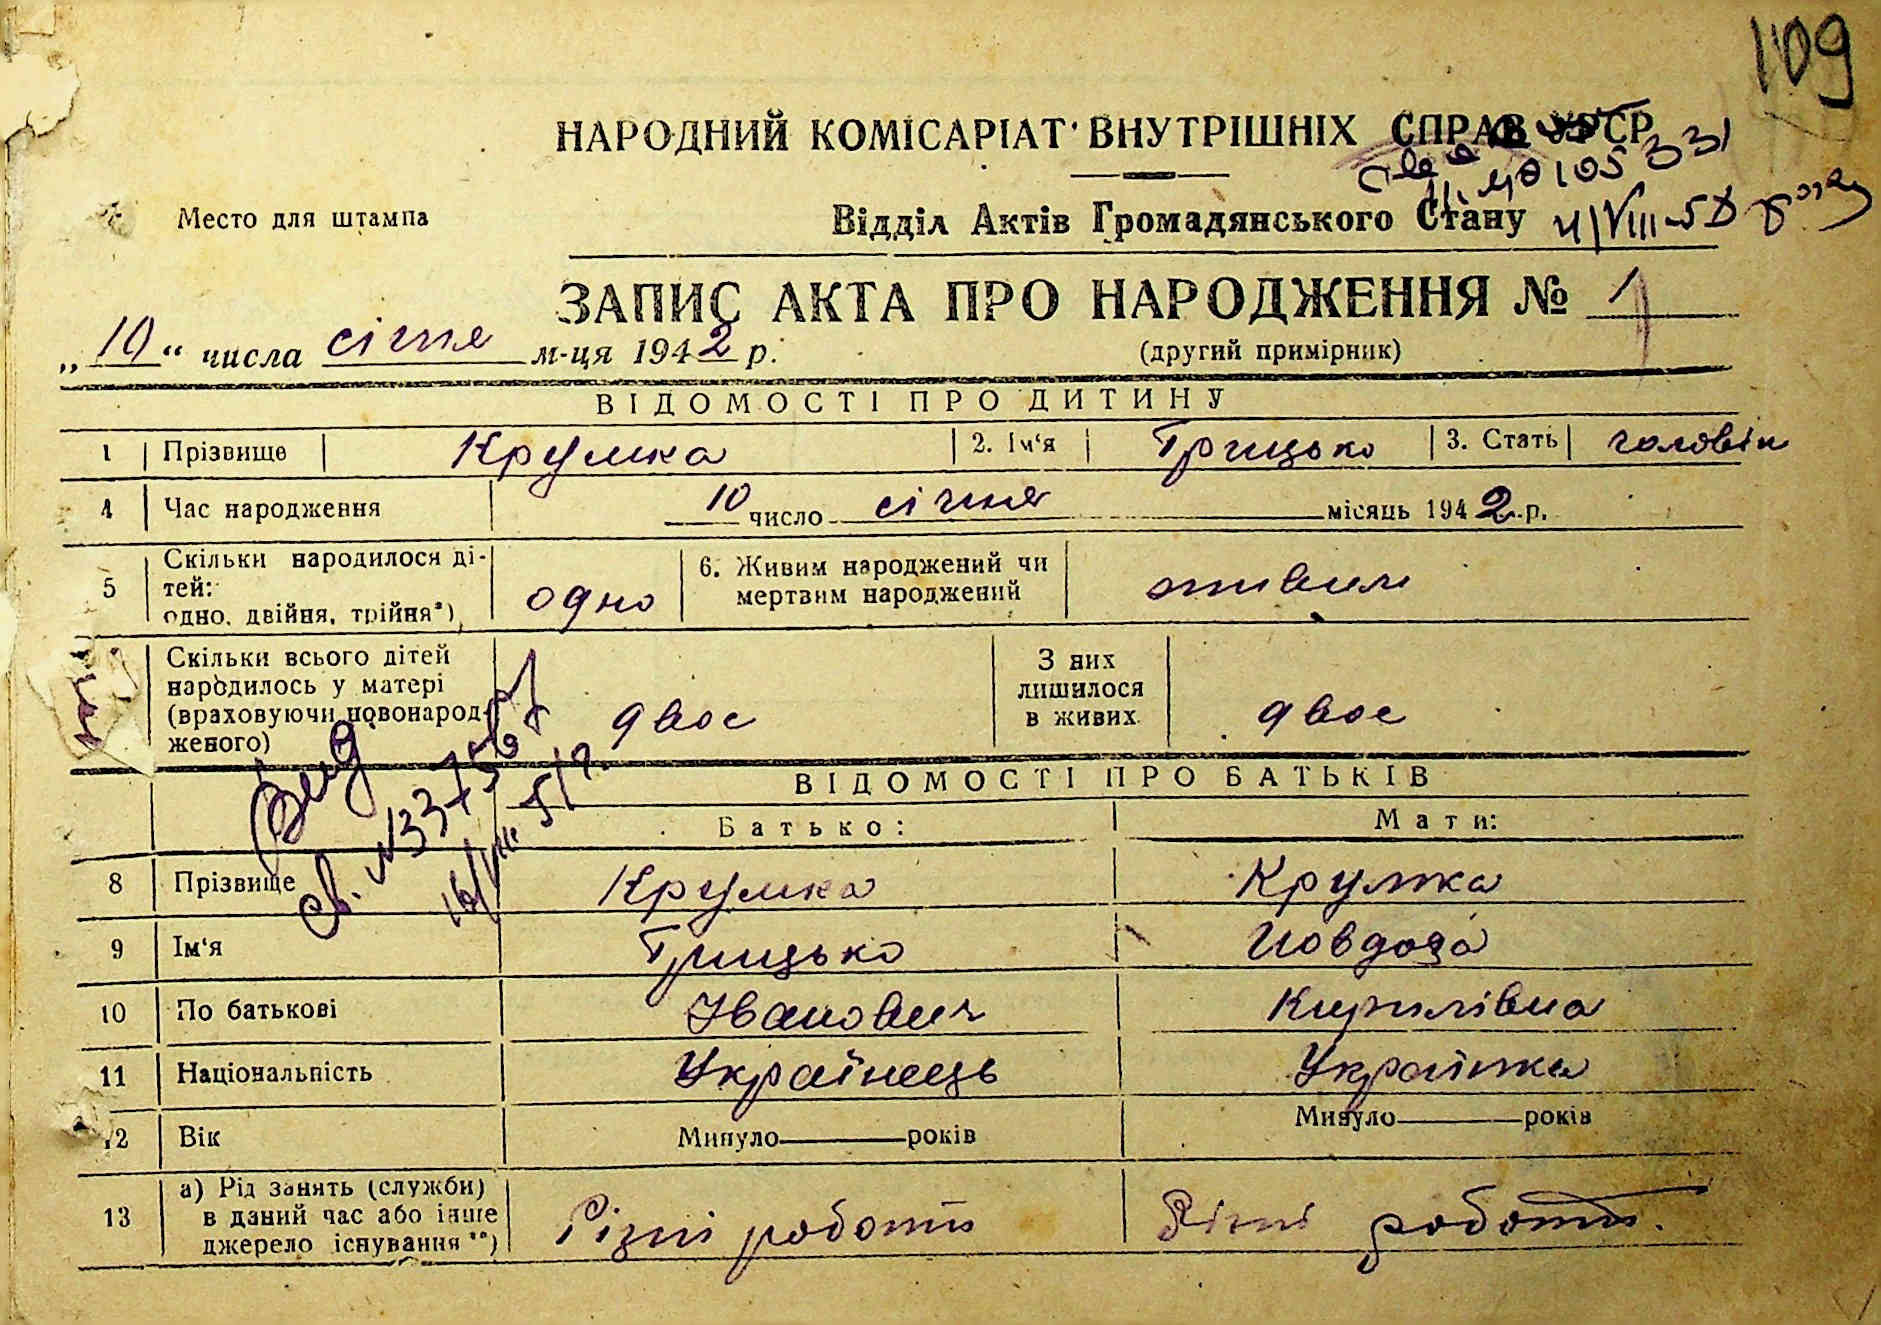 109
НАРОДНИЙ КОМІСАРІАТ ВНУТРІШНІХ СПРАВ УРСР
Место для штампа
Відділ Актів Громадянського Стану
ЗАПИС АКТА ПРО НАРОДЖЕННЯ № 1
„10“ числа січня м-ця 1942 р.
(другий примірник)
ВІДОМОСТІ ПРО ДИТИНУ
1 Прізвище Крумка 2. Ім‘я Грицько 3. Стать чоловіч
4 Час народження 10 число січня місяць 1942 р.
5 Скільки народилося ді-
тей:
одно, двійня, трійня*)
одно
6. Живим народжений чи
мертвим народжений
живим
Скільки всього дітей
народилось у матері
(враховуючи новонарод-
женого)
двоє
З них
лишилося
в живих
двоє
ВІДОМОСТІ ПРО БАТЬКІВ
Батько: Мати:
8 Прізвище Крумка Крумка
9 Ім‘я Грицько Йовдоха
10 По батькові Іванович Кирилівна
11 Національність Українець Українка
12 Вік Минуло років Минуло років
13 а) Рід занять (служби)
в даний час або інше
джерело існування **)
Різні роботи Різні роботи.